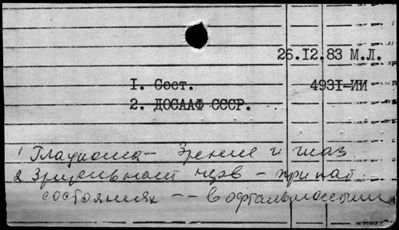 26.12.83 М.Л.
1. Сост. 4931-ИИ
2. ДОСААФ СССР.
1 Глаукома - Зрение и глаз
2 нерв - при
состояниях -- в офтальмологии